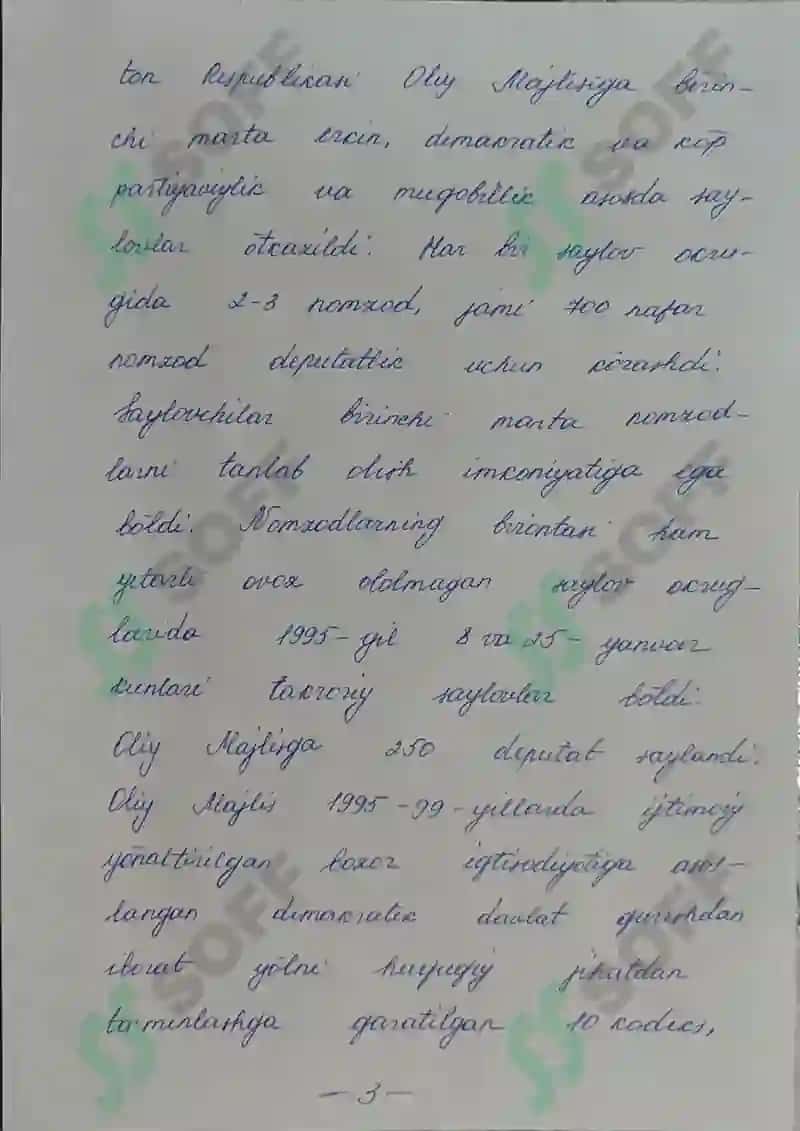 ton Respublikasi Oliy Majlisiga birin-
chi marta erkin, demakratik va kōp
partiyaviylik va muqobillik asosda say-
lovlar ōtkazildi. Har bir saylov okru-
gida 2-3 nomzod, jami 700 nafar
nomzod deputatlik uchun kōrashdi.
Saylovchilar birinchi marta nomzod-
larni tanlab olish imkoniyatiga ega
bōldi. Nomzodlarning birontasi ham
yetarli ovoz ololmagan saylov okrug-
larida 1995-yil 8 va 25-yanvar
kunlari takroriy saylovlar bōldi.
Oliy Majlisga 250 deputat saylandi.
Oliy Majlis 1995-99-yillarda ijtimoiy
yōnaltirilgan bozor iqtisodiyotiga asos-
langan demokratik davlat qurishdan
iborat yōlni huquqiy jihatdan
ta'minlashga qaratilgan 10 kodeks,
-3-
SOFF
SOFF
SOFF
SOFF
SOFF
SOFF